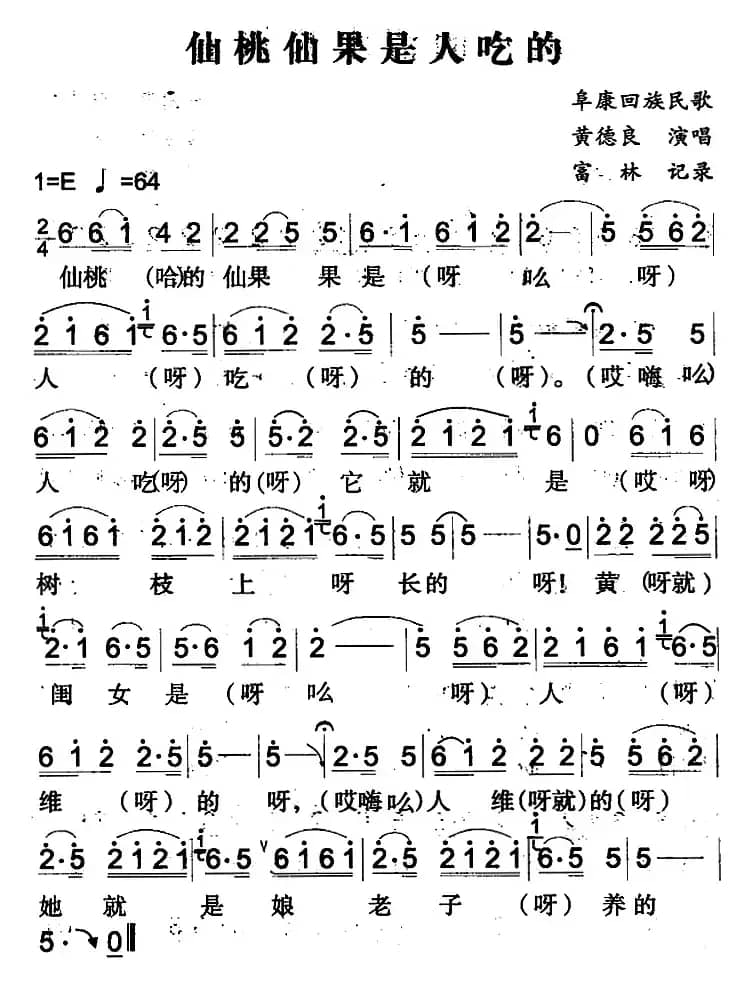 仙桃仙果是人吃的
阜康回族民歌
黄德良 演唱
1=E ♩=64
富 林 记录
2/4 6 6 1 4 2 | 2 2 5 5 | 6·1 6 1 2 | 2 — | 5 5 6 2
仙桃 (哈)的 仙果 果 是 (呀 么 呀)
2 1 6 1 6·5 | 6 1 2 2·5 | 5 — | 5 — | 2·5 5
人 (呀) 吃 (呀) 的 (呀)。 (哎嗨么)
6 1 2 2·5 | 5 5·2 2·5 | 2 1 2 1 6 | 0 6 1 6
人 吃(呀) 的(呀) 它 就 是 (哎呀)
6 1 6 1 2 1 2 | 2 1 2 1 6·5 | 5 5 | 5 — | 5·0 | 2 2 2 2 5
树 枝 上 呀 长 的 呀! 黄 (呀就)
2·1 6·5 | 5·6 1 2 | 2 — | 5 5 6 2 | 2 1 6 1 6·5
闺 女 是 (呀 么 呀) 人 (呀)
6 1 2 2·5 | 5 — | 5 — | 2·5 5 | 6 1 2 2 2 | 5 5 6 2
维 (呀) 的 呀, (哎嗨么) 人 维(呀就)的(呀)
2·5 2 1 2 1 | 6·5 ∨ 6 1 6 1 | 2·5 2 1 2 1 | 6·5 5 | 5 —
她 就 是 娘 老 子 (呀) 养的
5· 0